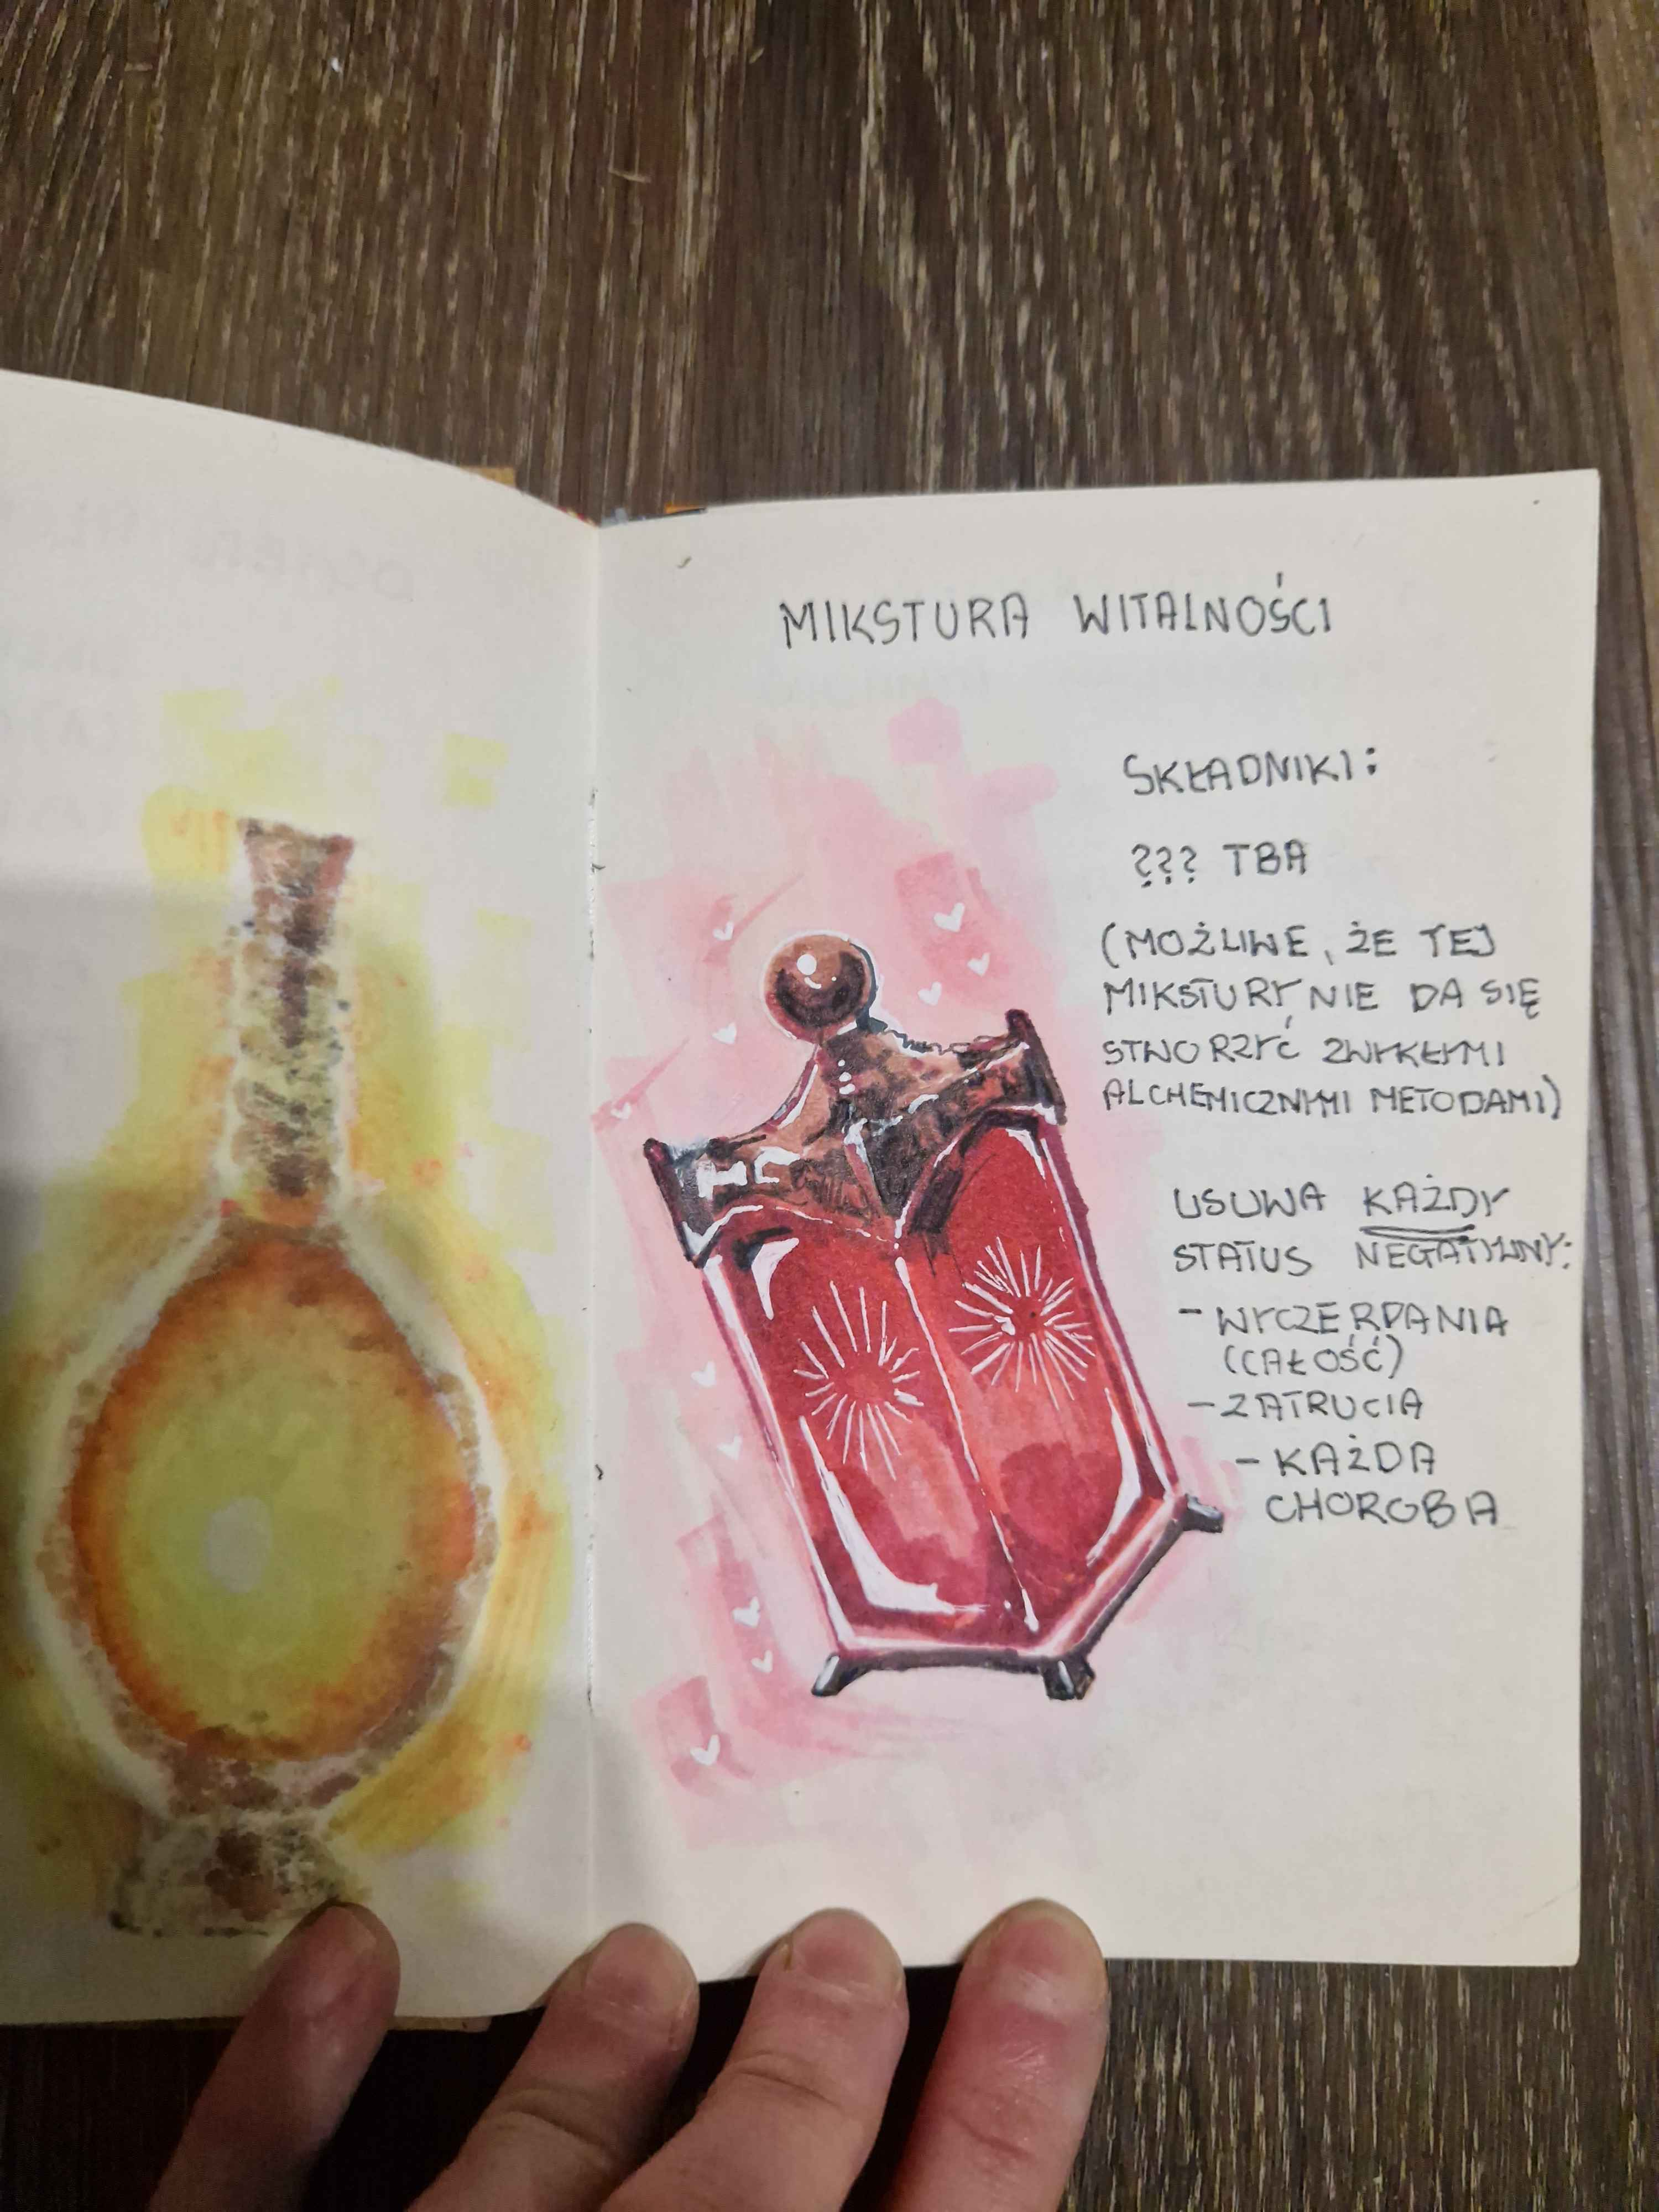 MIKSTURA WITALNOŚCI
SKŁADNIKI:
??? TBA
(MOŻLIWE, ŻE TEJ
MIKSTURY NIE DA SIĘ
STWORZYĆ ZWYKŁYMI
ALCHEMICZNYMI METODAMI)
USUWA KAŻDY
STATUS NEGATYWNY:
- WYCZERPANIA
(CAŁOŚĆ)
- ZATRUCIA
- KAŻDA
CHOROBA